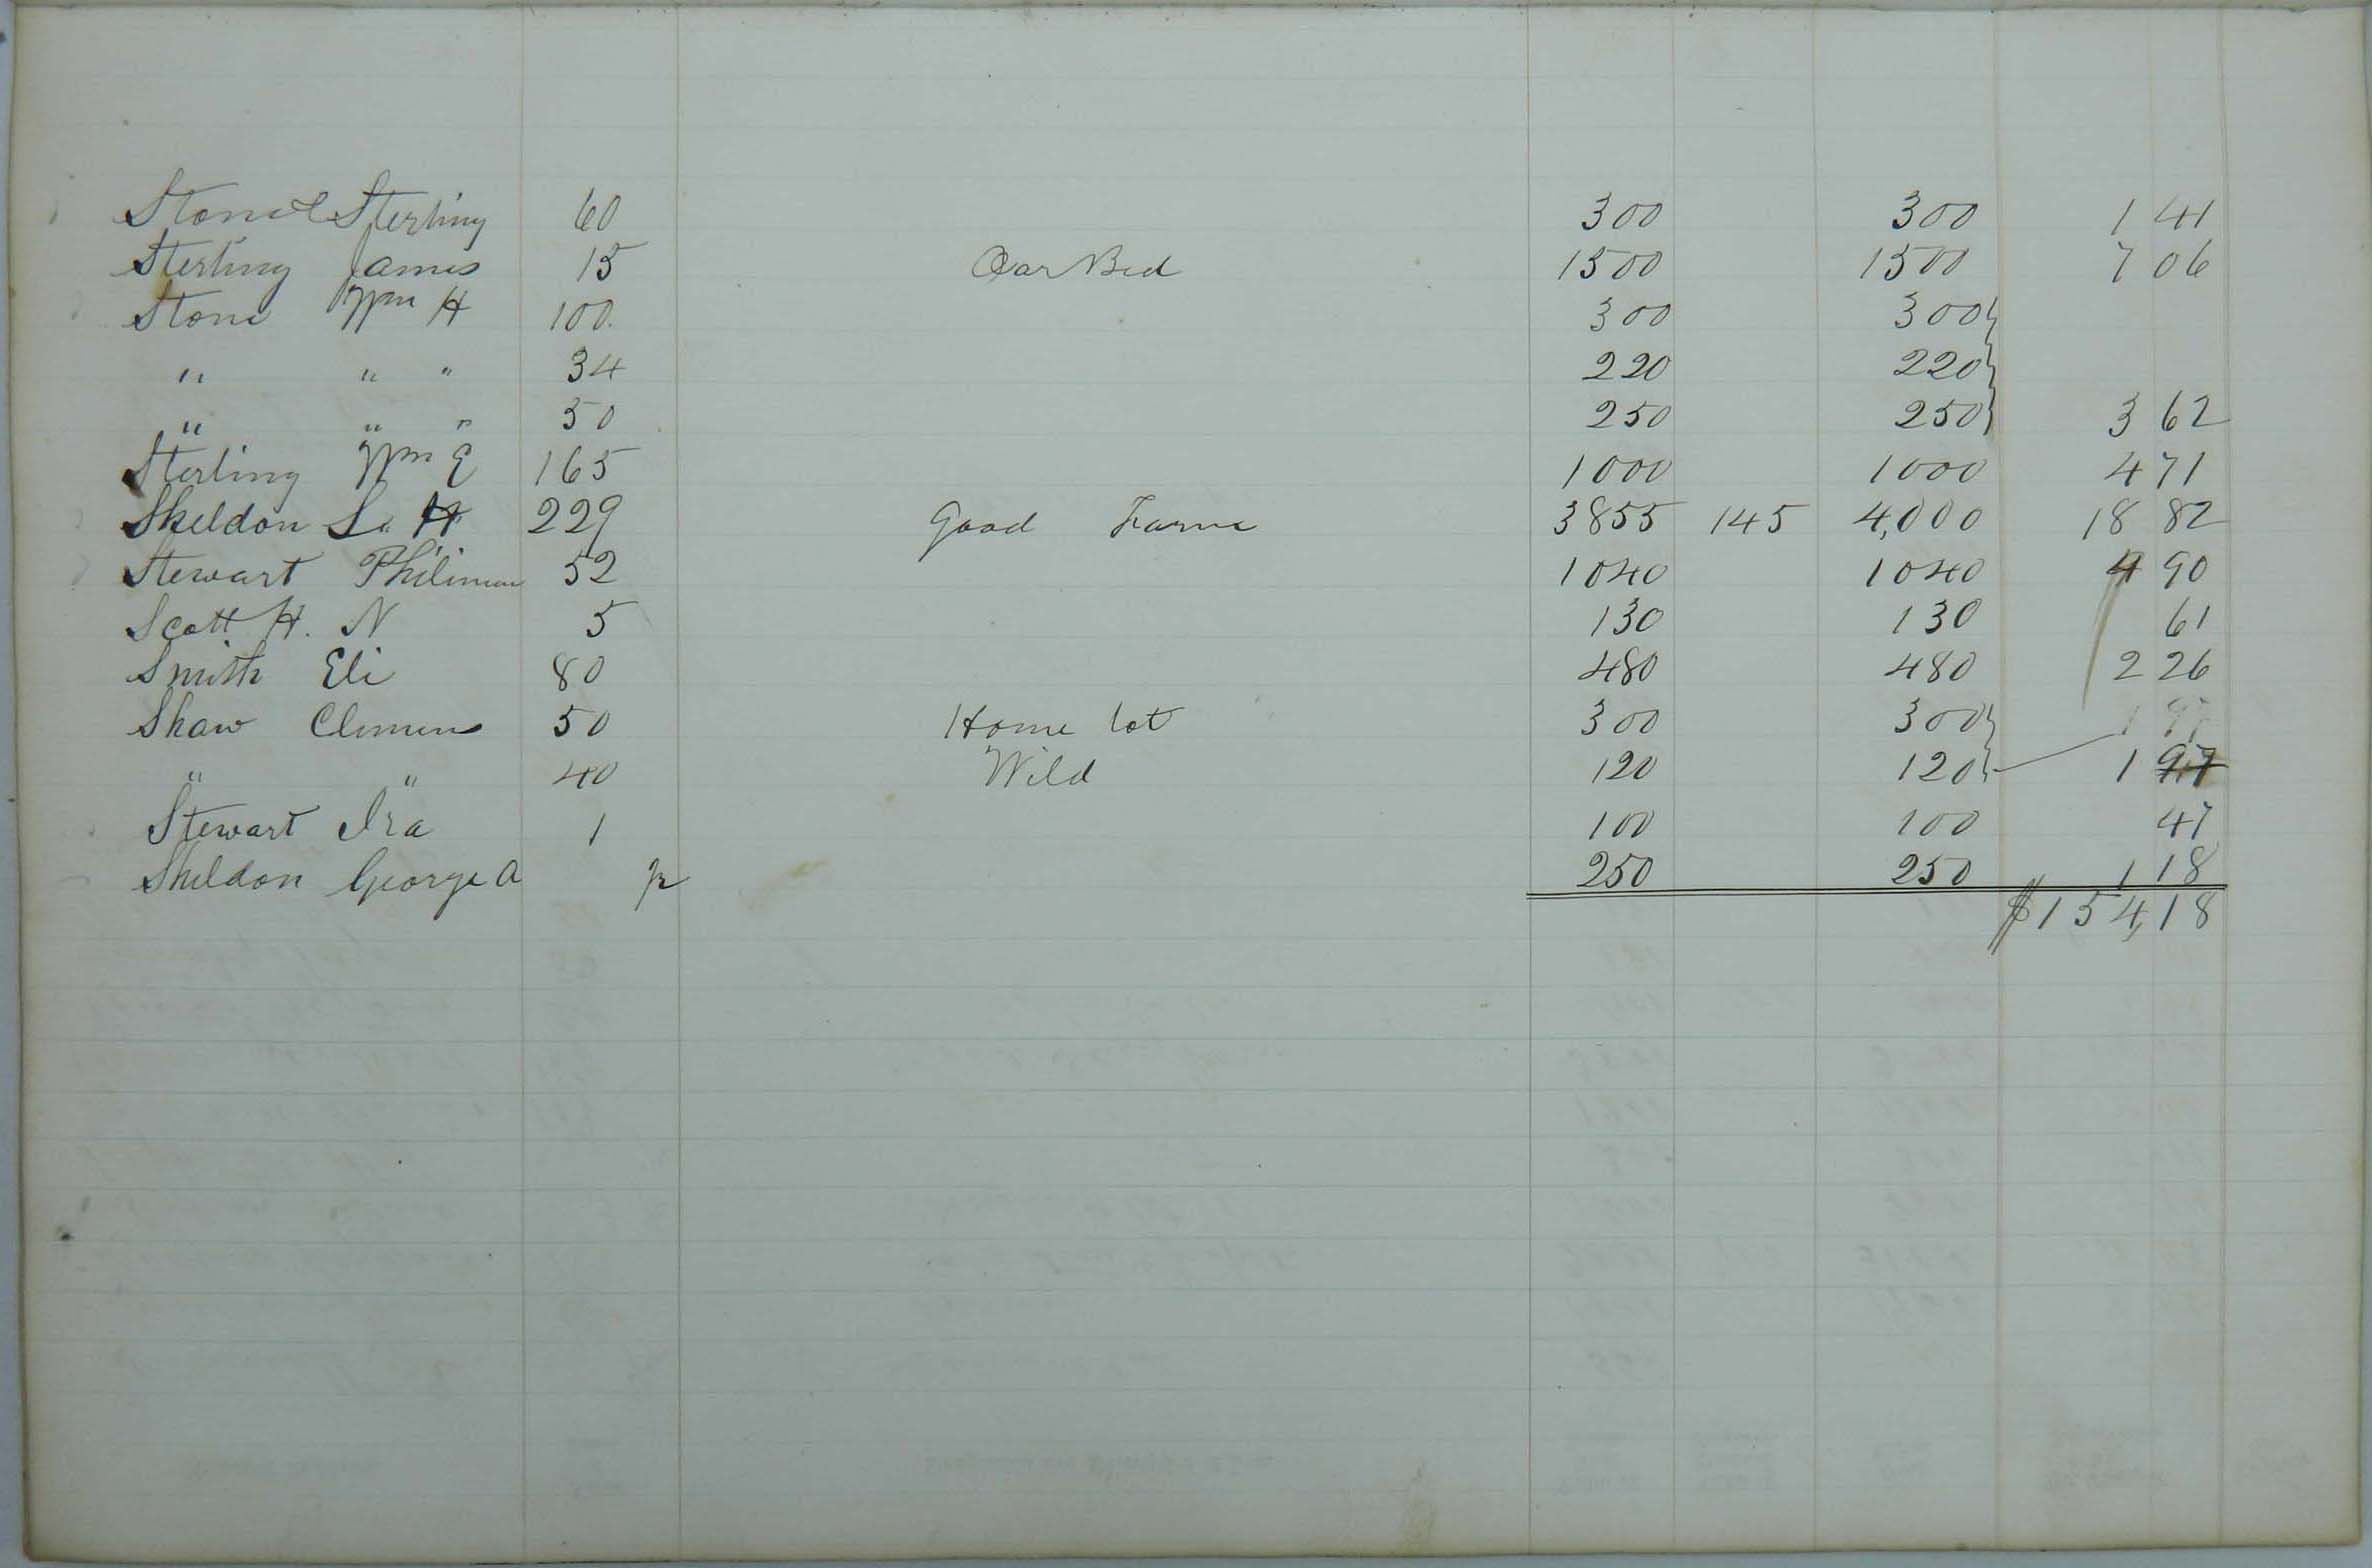 Stone & Sterling 60 300 300 1 41
Sterling James 15 Oar Bed 1500 1500 7 06
Stone Wm H 100. 300 300
" " " 34 220 220
" " " 50 250 250 3 62
Sterling Wm E 165 1000 1000 4 71
Sheldon L. H 229 Good Farm 3855 145 4,000 18 82
Stewart Philimon 52 1040 1040 4 90
Scott H. N 5 130 130 61
Smith Eli 80 480 480 2 26
Shaw Clemens 50 Home lot 300 300 1 97
" " 40 Wild 120 120 1 97
Stewart Ira 1 100 100 47
Sheldon George A 250 250 1 18
$154,18